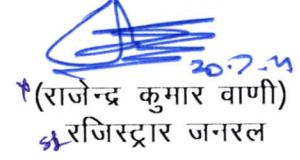 20-7-11
(राजेन्द्र कुमार वाणी)
रजिस्ट्रार जनरल